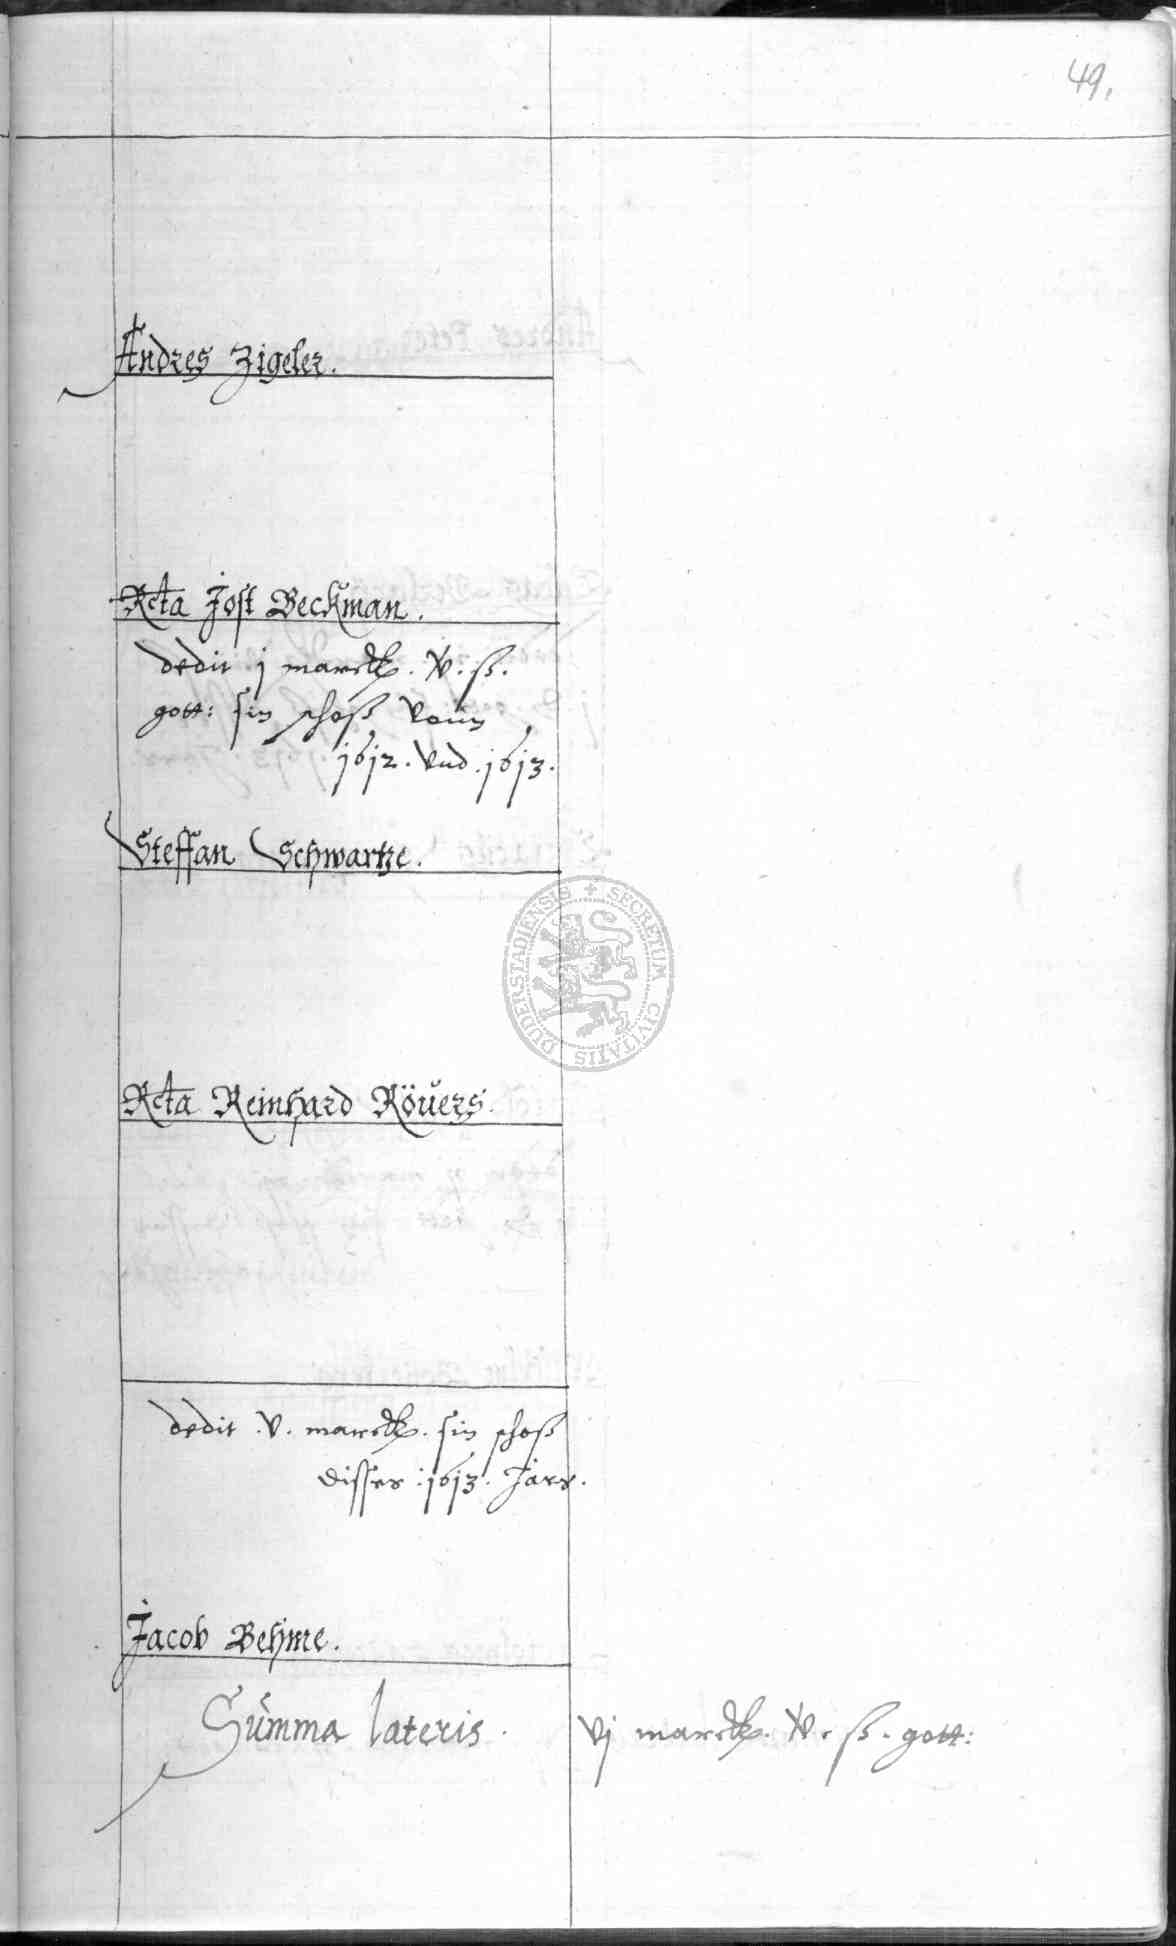 49.
Andres Zigeler.
Rcta Jost Beckman.
dedit j marck. v. ß.
gott: sin schoß vonn
1612. vnd .1613.
Steffan Schwartze.
SECRETUM CIVITATIS DUDERSTADIENSIS
Rcta Reinhard Röuers.
dedit .v. marck. sin schoß
disses :1613. Jars.
Jacob Behme.
Summa lateris. vj marck. v. ß. gott: